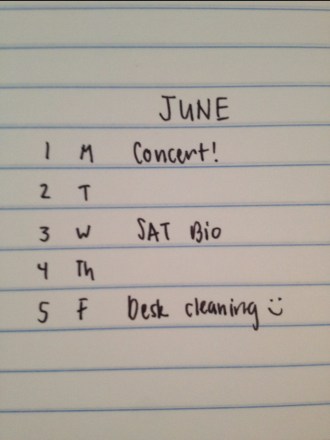 JUNE
1 M Concert!
2 T
3 W SAT Bio
4 Th
5 F Desk cleaning :)